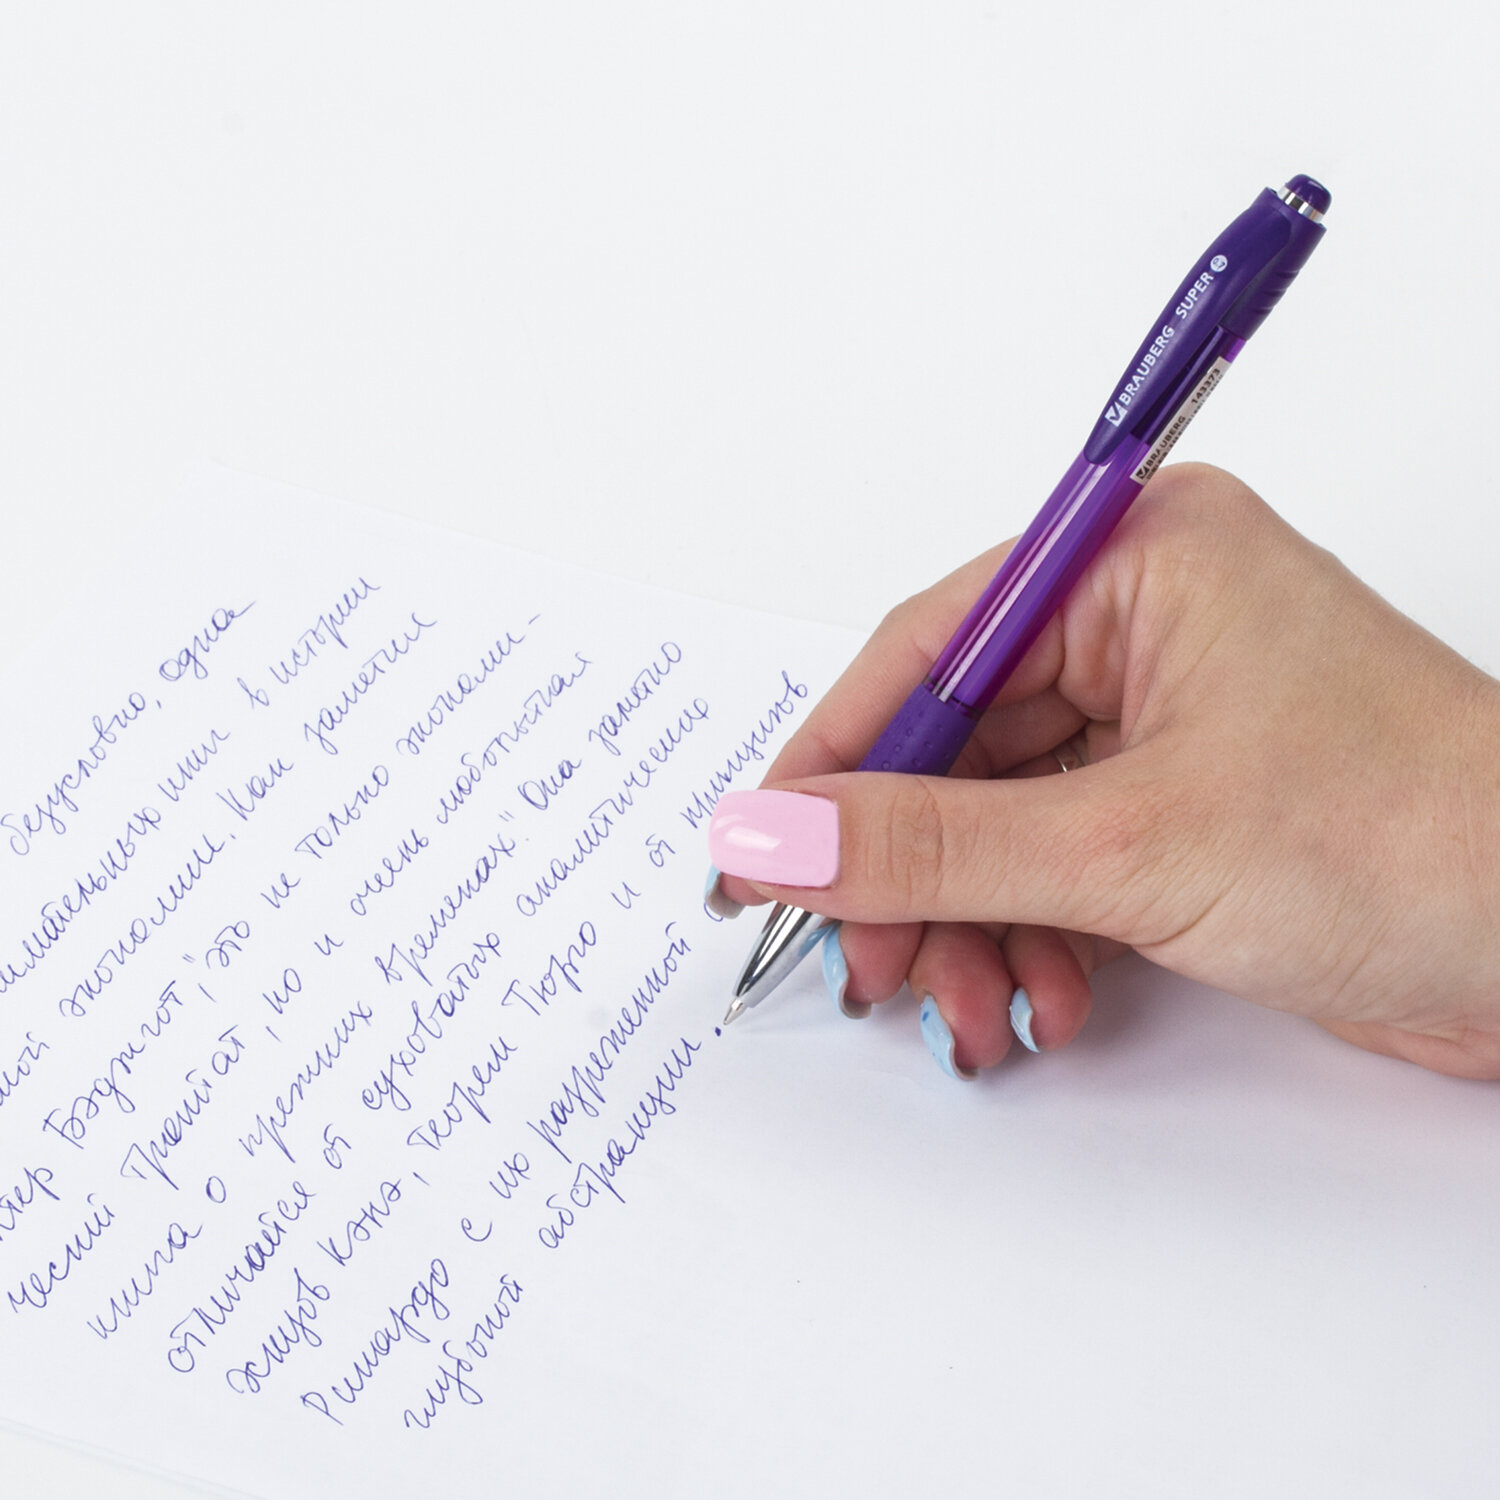 безусловно, одна
имательных книг в истории
мой экономии. Как заметил
лтер Бэджгот, "это не только экономи-
ческий трактат, но и очень любопытная
книга о прежних временах". Она заметно
отличается от суховатых аналитических
эскизов Кэнэ, теорем Тюрго и от принципов
Рикардо с их разреженной
глубокой абстракции.
BRAUBERG SUPER 0.7
BRAUBERG 143373